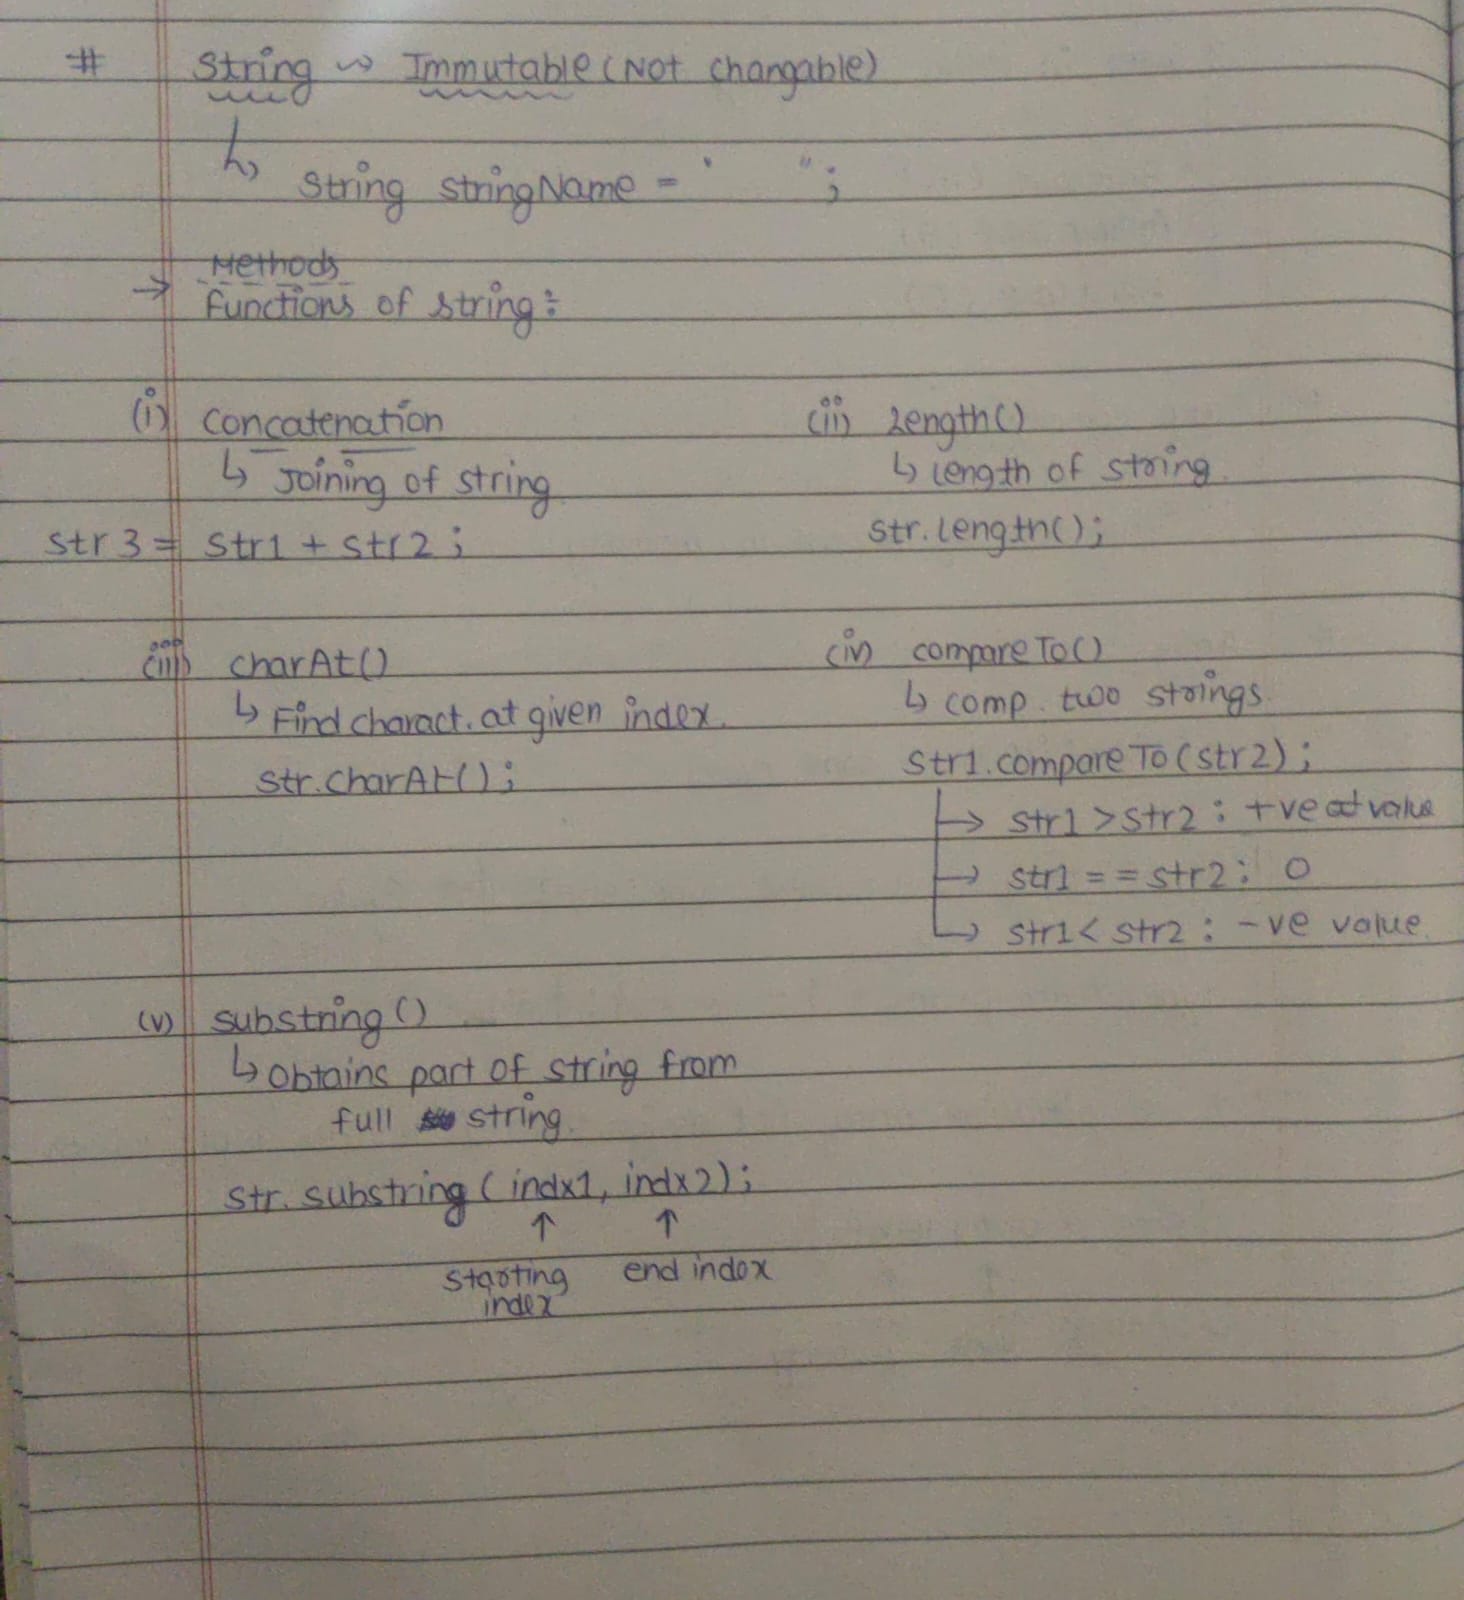 # String ~> Immutable (Not changable)
↳ String stringName = " ";
Methods
→ Functions of string:
(i) Concatenation
↳ Joining of string
str3 = str1 + str2;
(ii) Length()
↳ Length of string.
str.length();
(iii) charAt()
↳ Find charact. at given index.
str.charAt();
(iv) compareTo()
↳ comp. two strings.
str1.compareTo(str2);
→ str1 > str2 : +ve value
→ str1 == str2 : 0
→ str1 < str2 : -ve value.
(v) substring()
↳ Obtains part of string from
full string.
str.substring (indx1, indx2);
↑ ↑
starting end index
index